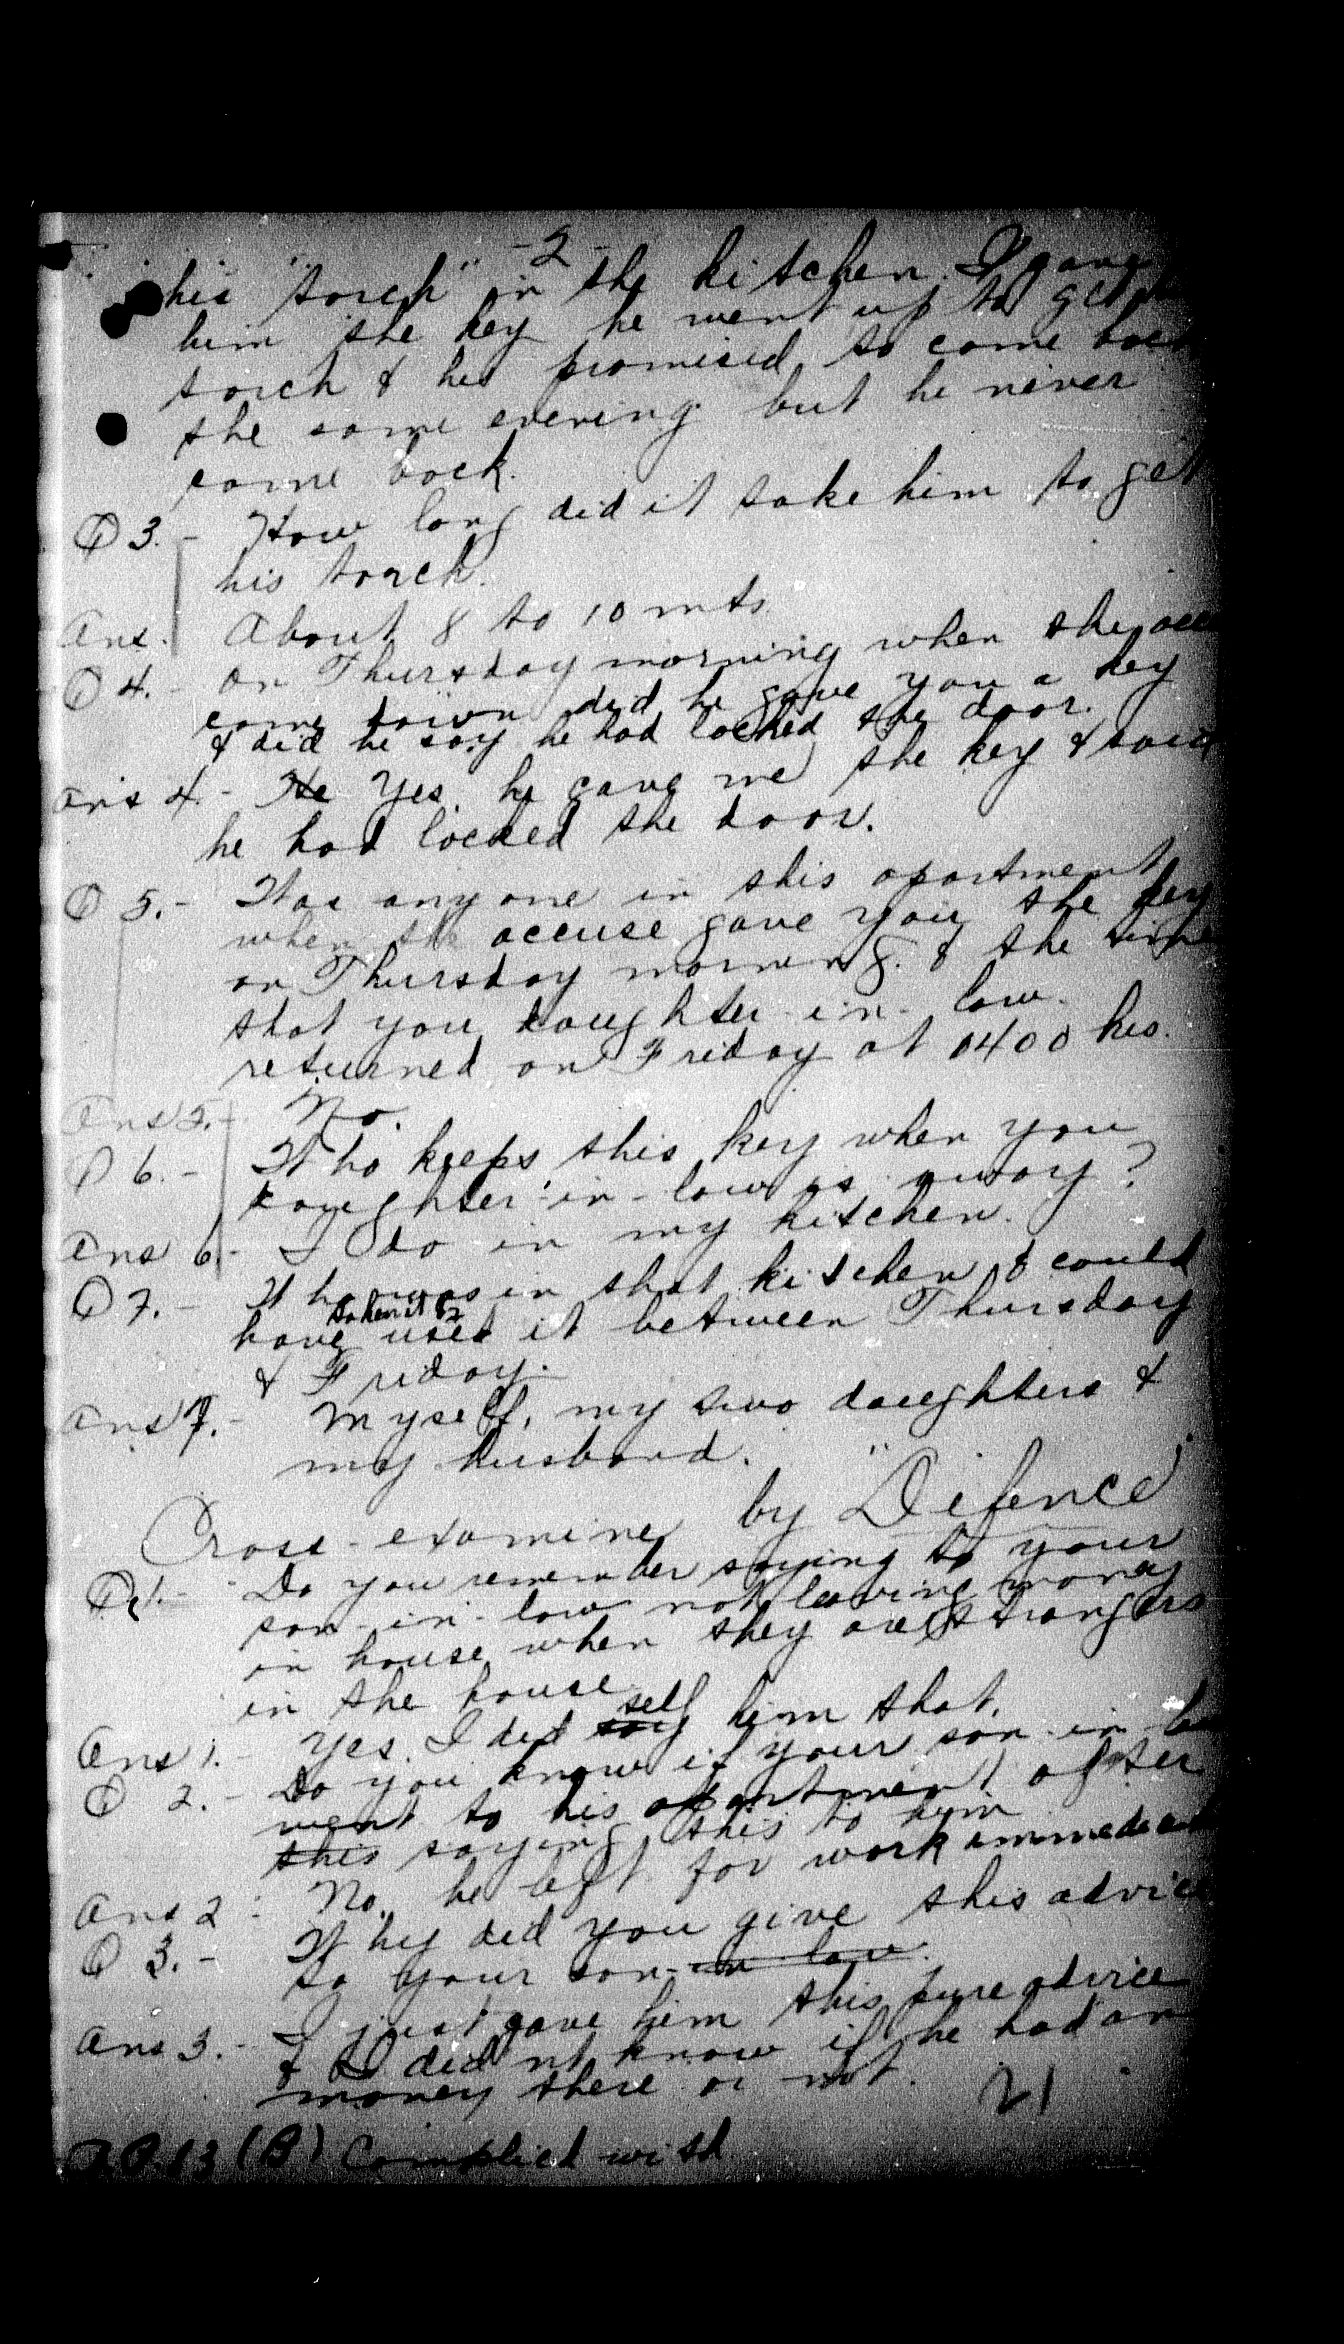 -2-
his "torch" in the kitchen. I gave
him the key he went up to get his
torch & he promised to come back
the same evening but he never
came back.
Q 3.- How long did it take him to get
his torch.
Ans. About 8 to 10 mts
Q 4.- On Thursday morning when the acc
come down did he gave you a key
& did he say he had locked the door.
Ans 4.- He Yes. he gave me the key & said
he had locked the door.
Q 5.- Was anyone in this apartment
when the accuse gave you the key
on Thursday morning. & the time
that you daughter-in-law.
returned on Friday at 1400 hrs.
Ans 5.- No.
Q 6.- Who keeps this key when you
daughter-in-law is away?
Ans 6.- I do in my kitchen.
Q 7.- Who was in that kitchen & could
taken it &
have used it between Thursday
& Friday.
Ans 7.- Myself, my two daughters &
my husband.
Cross-examine by "Difence"
Q 1.- Do you remember saying to your
son-in-law not leaving money
in house when they are strangers
in the house
tell
Ans 1.- Yes. I did say him that.
Q 2.- Do you know if your son-in-law
went to his apartment after
this saying this to him
Ans 2:- No. he left for work immediat
Q 3.- Why did you give this advice
to your son-in-law.
Ans 3.- I just gave him this pure advice
& I didn't know if he had an
money there or not.
21
R.P. 13 (B) Complied with